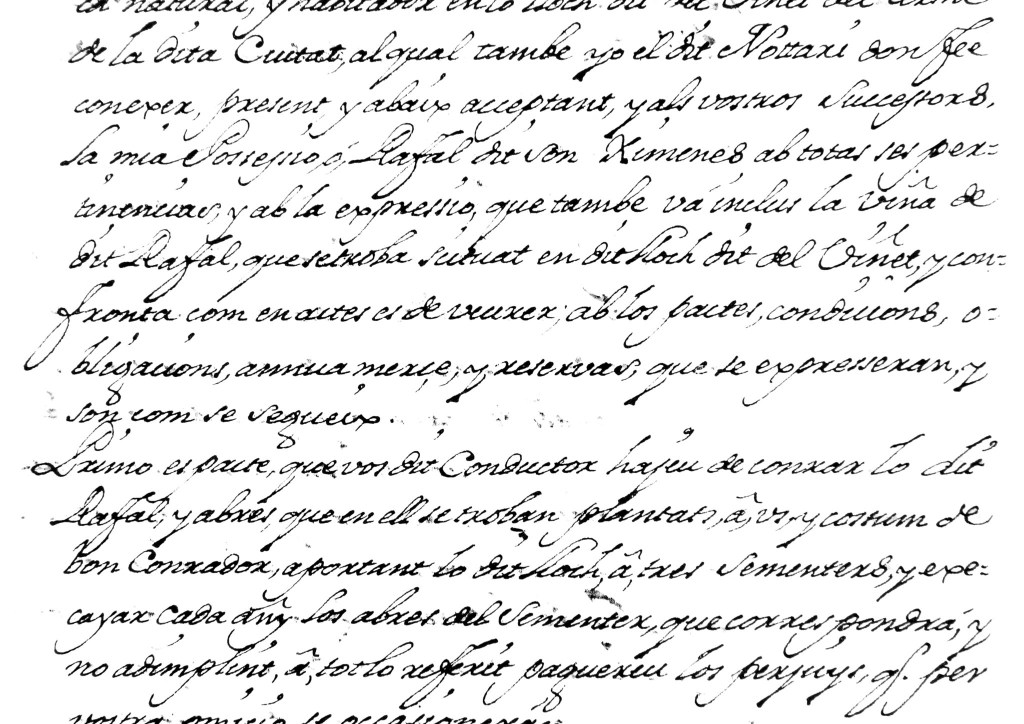 ca natural, y habitador en lo lloch dit del Viñet del terme
de la dita Ciutat, al qual tambe yo el dit Nottari don fee
conexer, present, y abaix acceptant, y als vostros Successors,
la mia Possessio, ó, Rafal dit son Ximenes ab totas ses per=
tinencias, y ab la expressio, que tambe vá inclus la viña de
dit Rafal, que se troba situat en dit lloch dit del Viñet, y con-
fronta com en actes es de veurer; ab los pactes, condicions, o=
bligacions, annua merçe, y reservas, que se expresseran, y
son com se segueix.
Primo es pacte, que vos dit Conductor hajeu de conrar lo dit
Rafal, y abres, que en ell se troban plantats, â, vs, y costum de
bon Conrador, aportant lo dit lloch, â, tres Sementers, y exe-
cayar cada añy los abres del Sementer, que correspondrá, y
no adimplint, â, tot lo referit paguereu los perjuys, q. per
vostra omicio se occasioneran